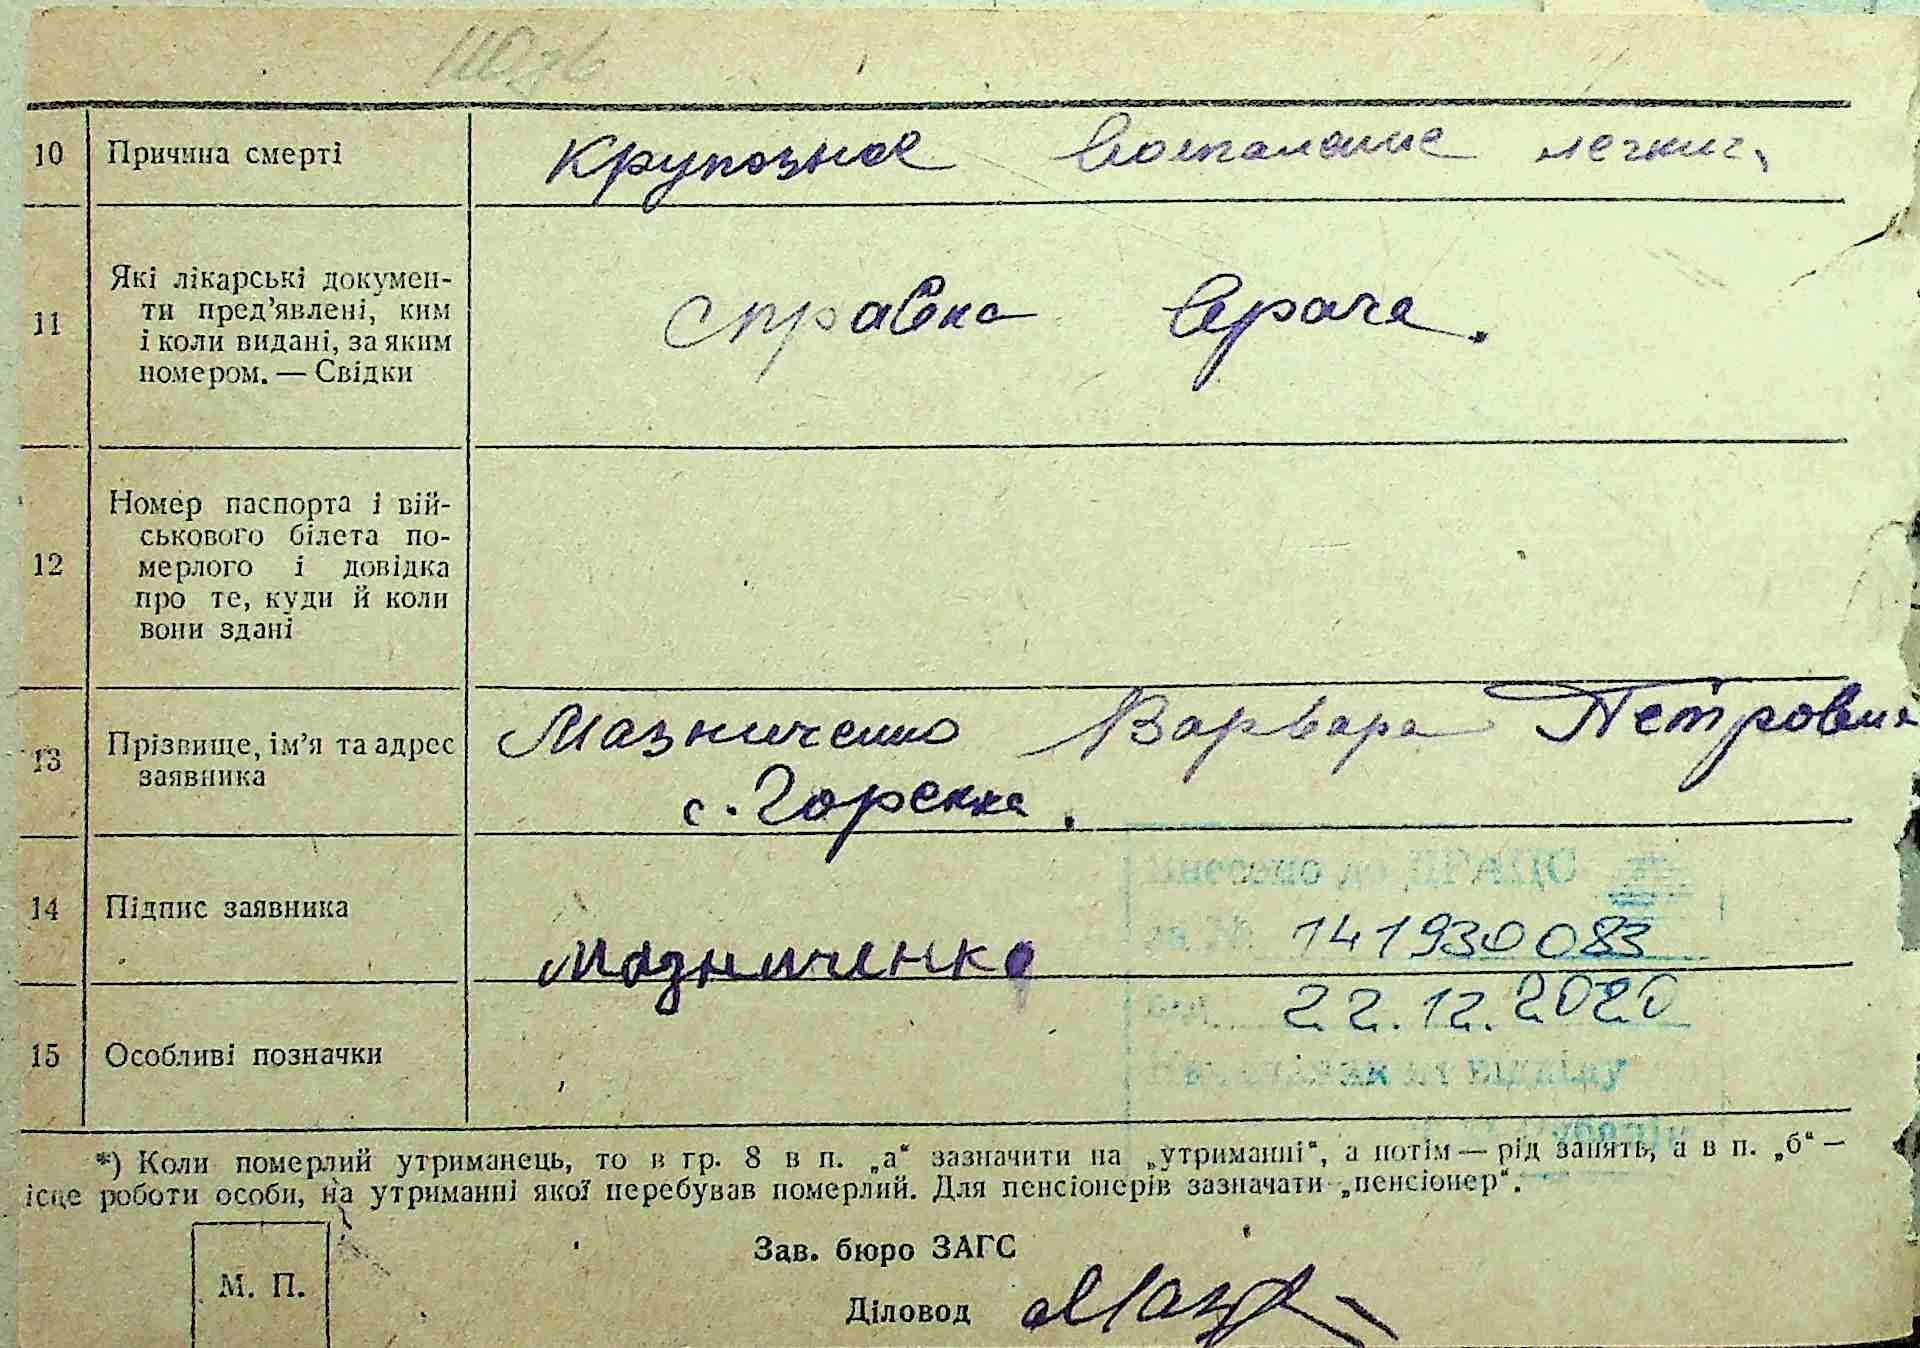 10 Причина смерті Крупозное воспаление легких,
11 Які лікарські докумен-
ти пред'явлені, ким
і коли видані, за яким
номером. — Свідки
справка врача.
12 Номер паспорта і вій-
ськового білета по-
мерлого і довідка
про те, куди й коли
вони здані
13 Прізвище, ім'я та адрес
заявника
Мазниченко Варвара Петровна
с. Горенка.
14 Підпис заявника
Мазниченко
Внесено до ДРАЦС
за № 141930083
від 22.12.2020
відділу
15 Особливі позначки
*) Коли померлий утриманець, то в гр. 8 в п. „а“ зазначити на „утриманні“, а потім — рід занять, а в п. „б“ —
ісце роботи особи, на утриманні якої перебував померлий. Для пенсіонерів зазначати „пенсіонер“.
М. П.
Зав. бюро ЗАГС
Діловод